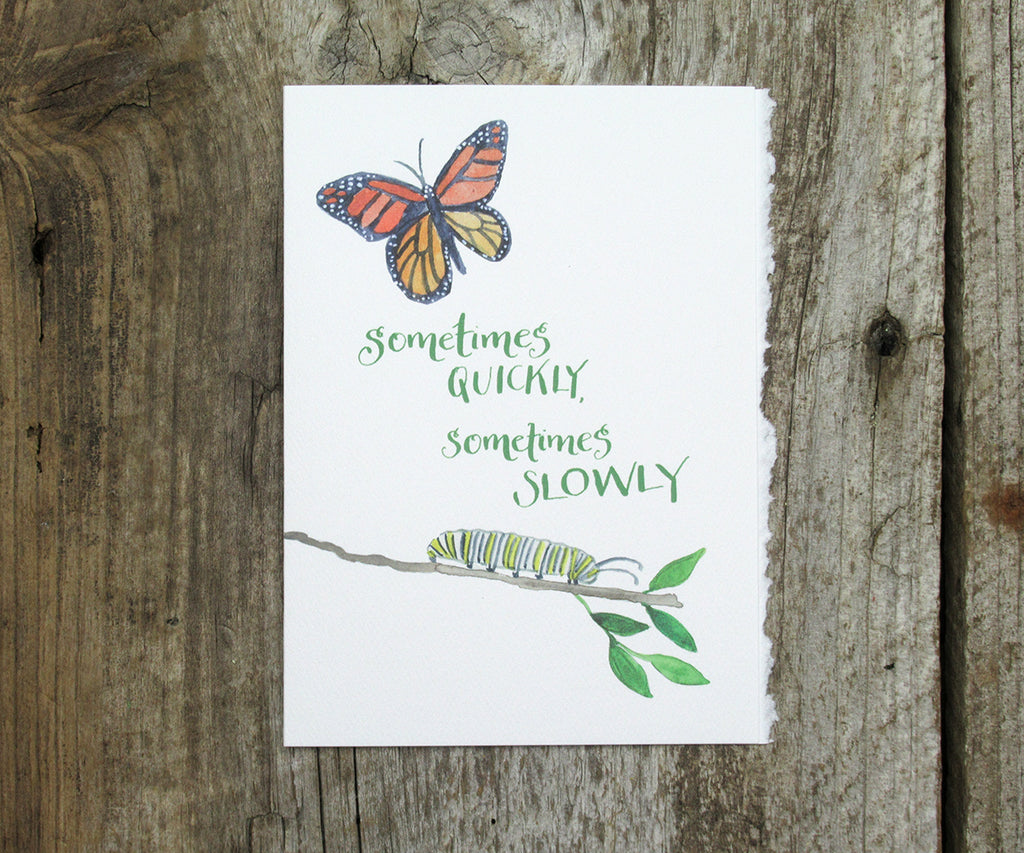 sometimes
QUICKLY,
sometimes
SLOWLY